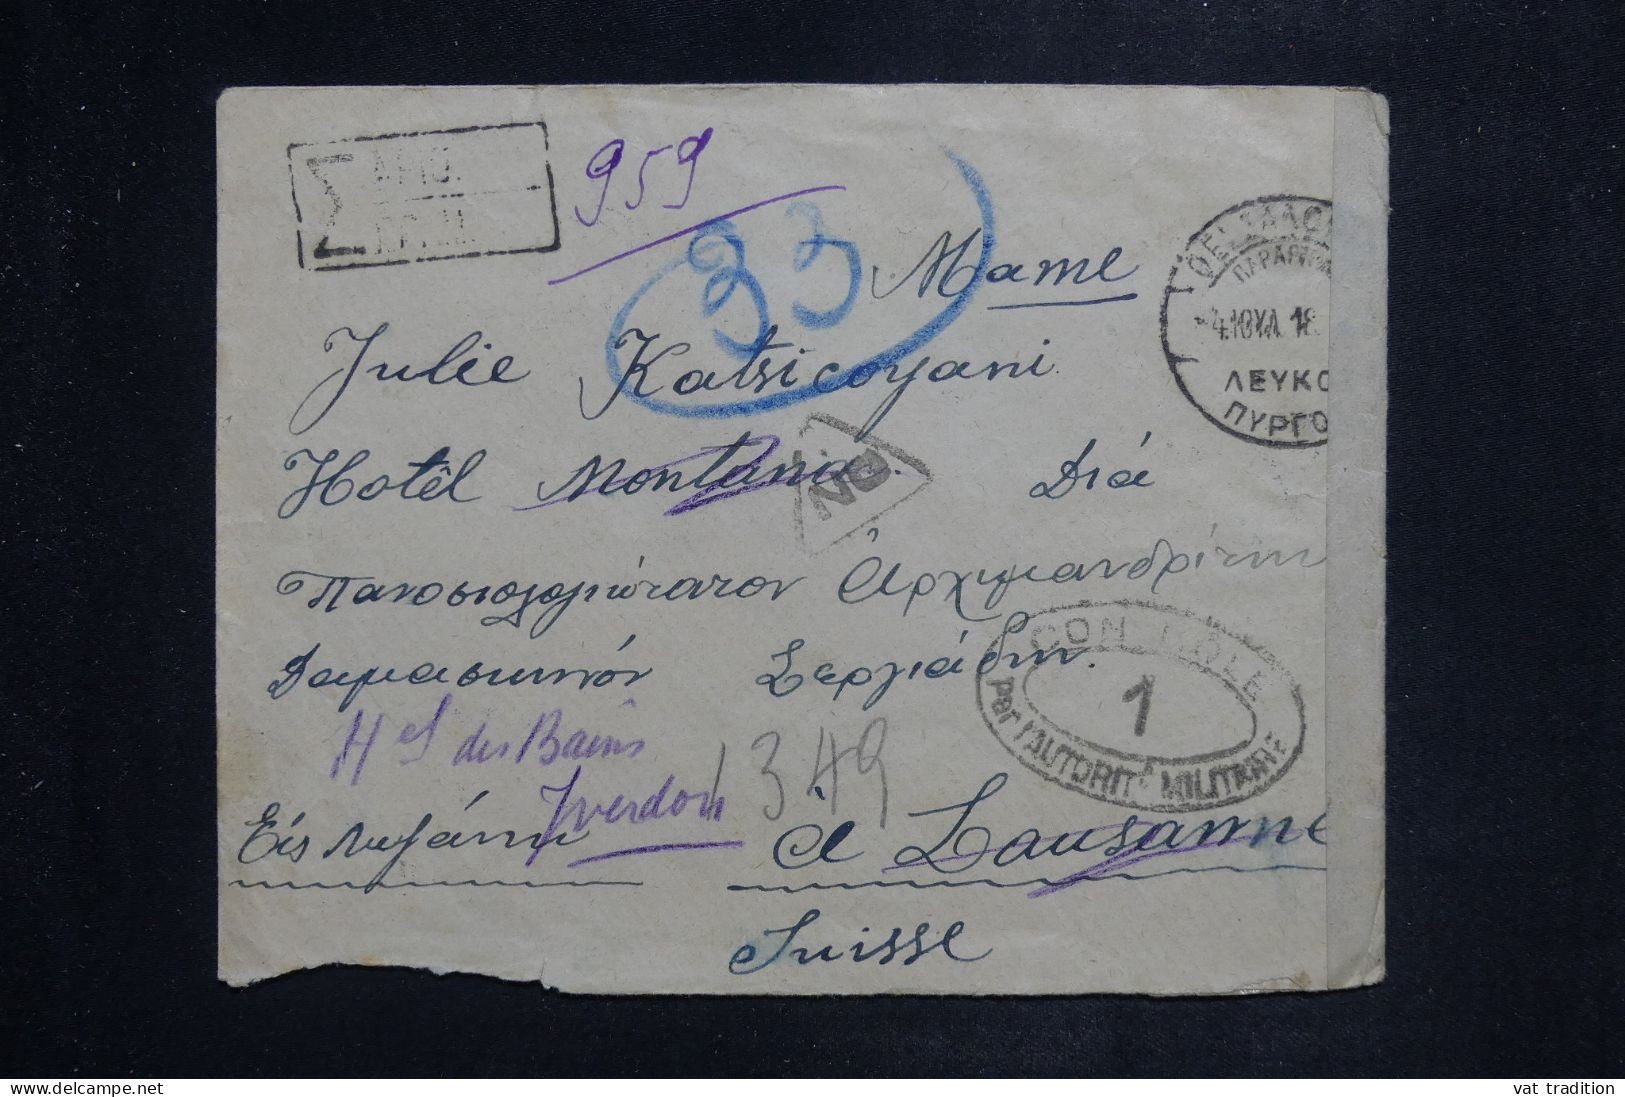 Σ ΑΡΙΘ.
959
33
Mame
Julie Katsicoyani
Hotêl Montana. Διά
Πανοσιολογιώτατον Ἀρχιμανδρίτην
Δαμασκηνόν Σεργιάδην.
Hel des Bains
Yverdon 1349
Εἰς Λωζάνην à Lausanne
Suisse
ΘΕΣΣΑΛΟ
ΠΑΡΑΡΤΗΜ
4 ΙΟΥΛ 18
ΛΕΥΚΟ
ΠΥΡΓΟ
CONTROLE
1
par l'AUTORITÉ MILITAIRE
vat tradition